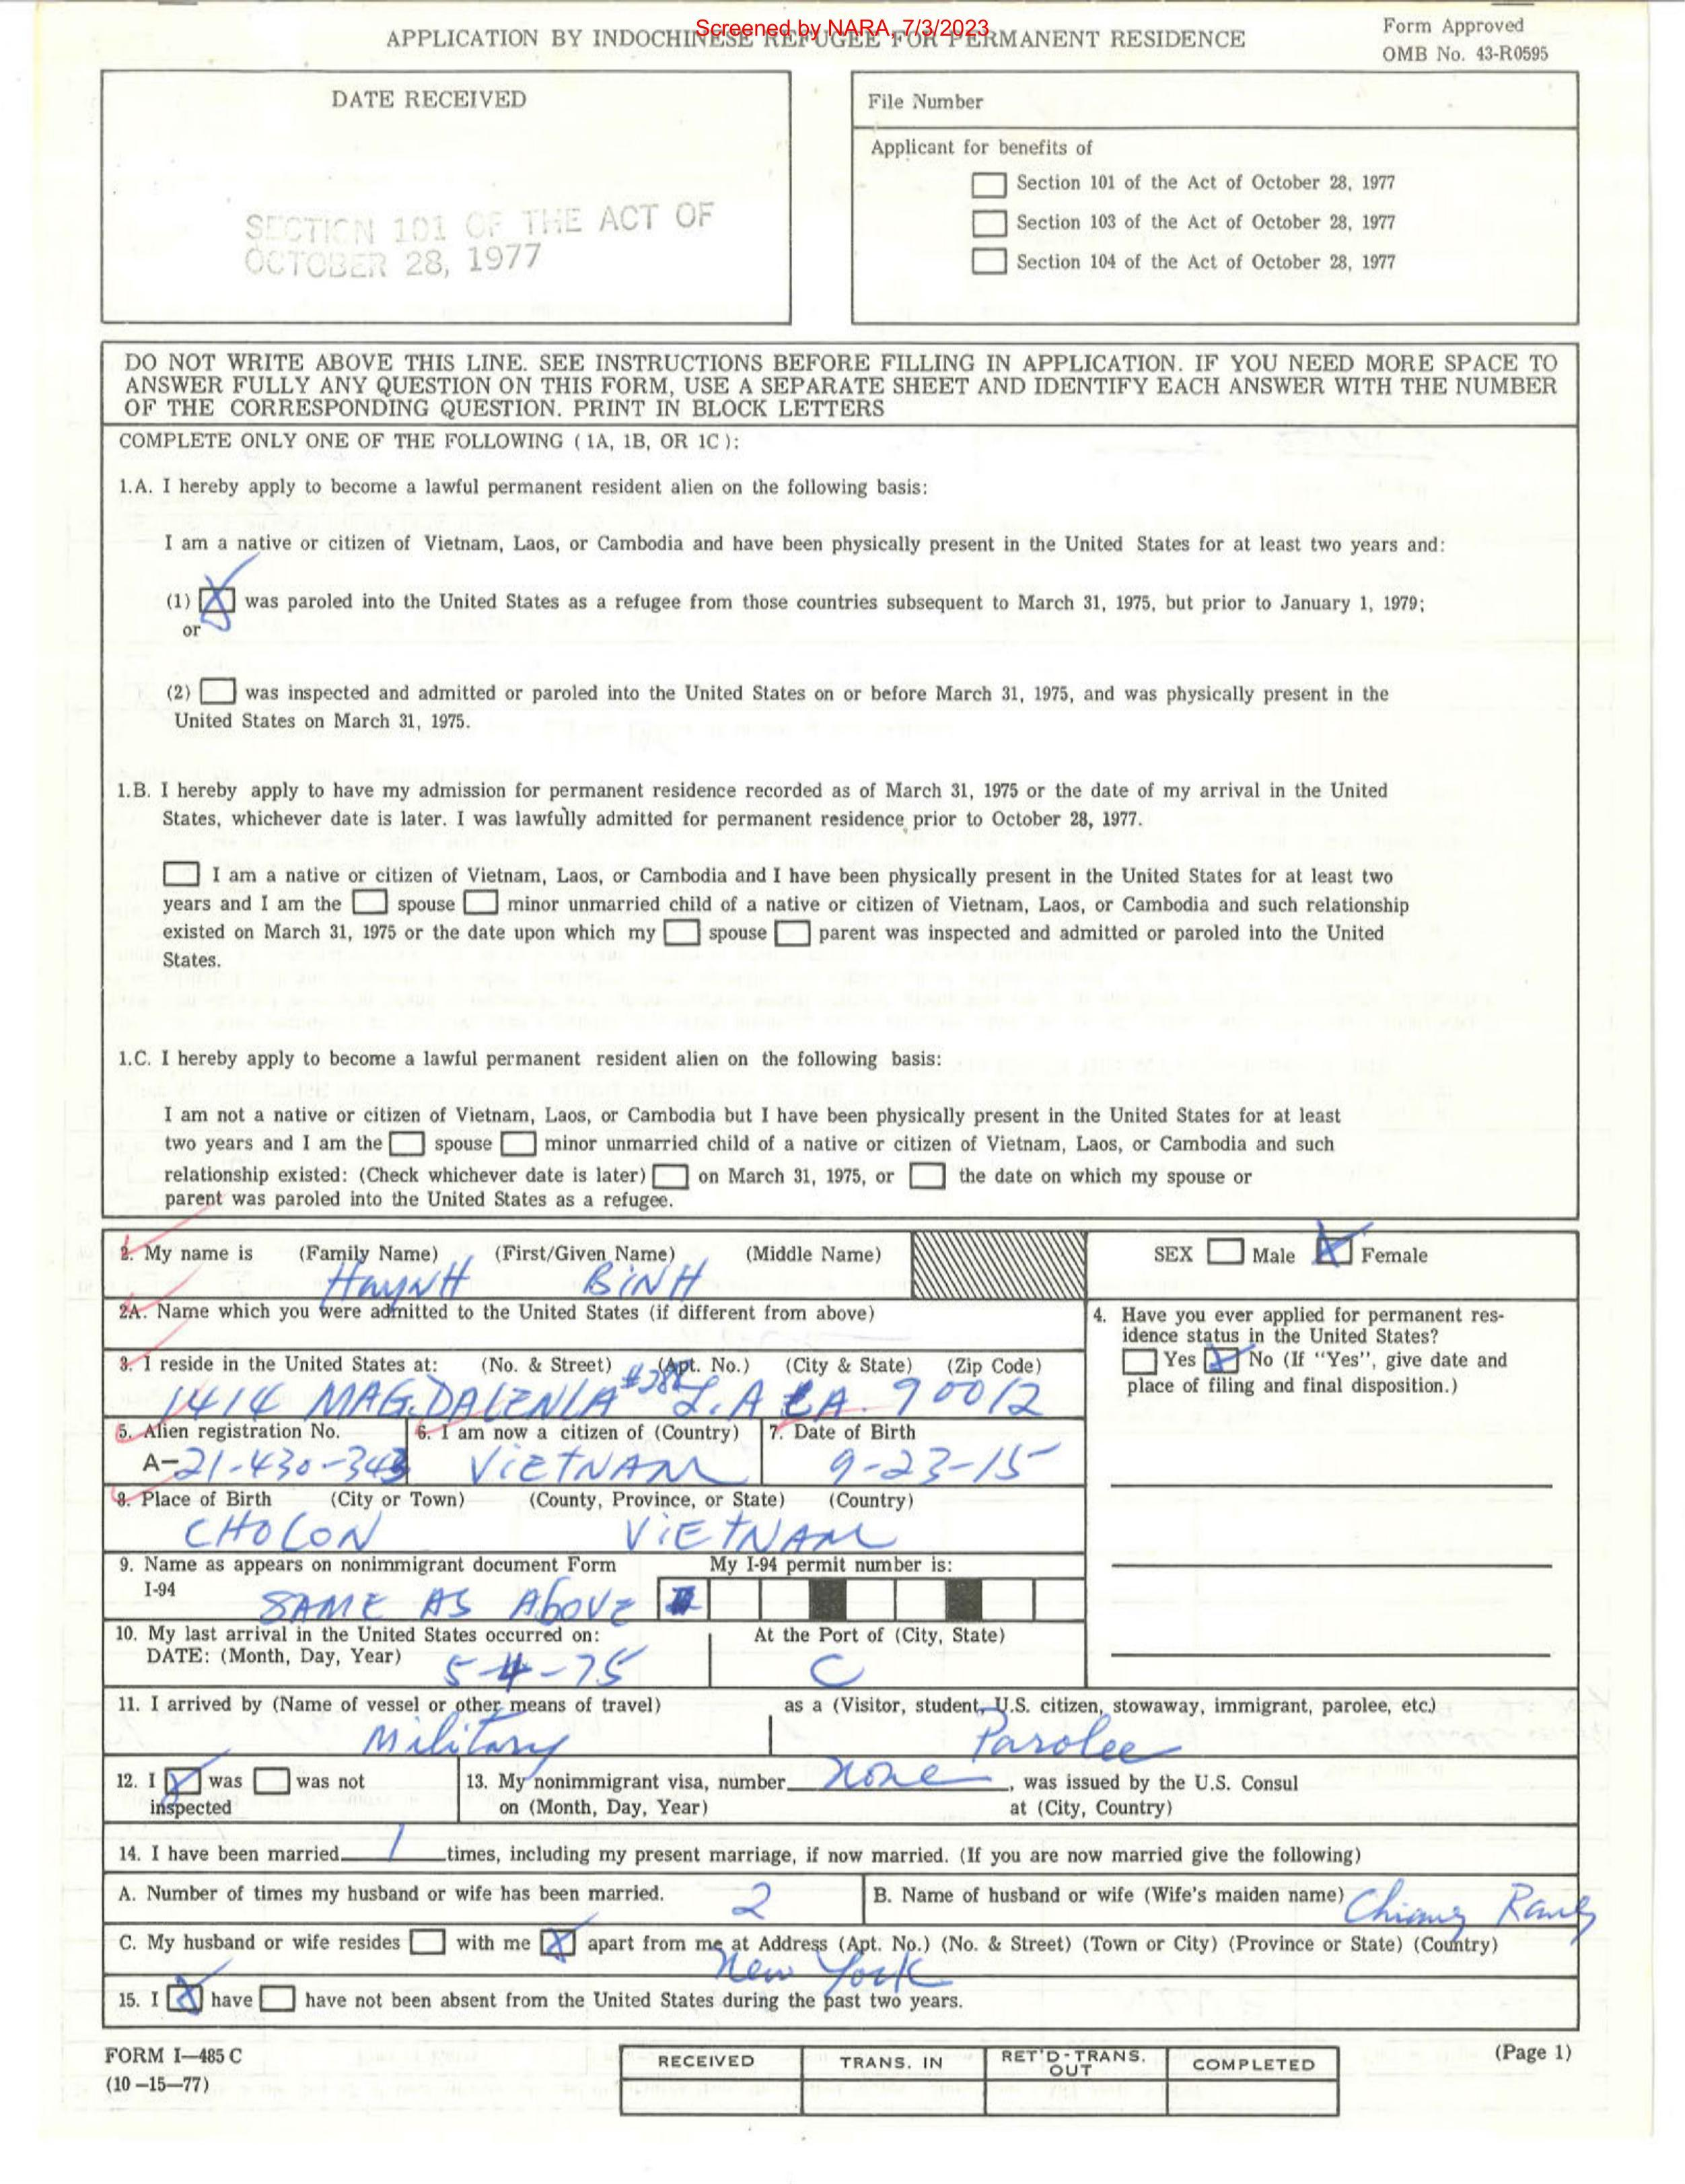 Screened by NARA, 7/3/2023
APPLICATION BY INDOCHINESE REFUGEE FOR PERMANENT RESIDENCE
Form Approved
OMB No. 43-R0595
DATE RECEIVED
SECTION 101 OF THE ACT OF
OCTOBER 28, 1977
File Number
Applicant for benefits of
Section 101 of the Act of October 28, 1977
Section 103 of the Act of October 28, 1977
Section 104 of the Act of October 28, 1977
DO NOT WRITE ABOVE THIS LINE. SEE INSTRUCTIONS BEFORE FILLING IN APPLICATION. IF YOU NEED MORE SPACE TO
ANSWER FULLY ANY QUESTION ON THIS FORM, USE A SEPARATE SHEET AND IDENTIFY EACH ANSWER WITH THE NUMBER
OF THE CORRESPONDING QUESTION. PRINT IN BLOCK LETTERS
COMPLETE ONLY ONE OF THE FOLLOWING (1A, 1B, OR 1C):
1.A. I hereby apply to become a lawful permanent resident alien on the following basis:
I am a native or citizen of Vietnam, Laos, or Cambodia and have been physically present in the United States for at least two years and:
(1) X was paroled into the United States as a refugee from those countries subsequent to March 31, 1975, but prior to January 1, 1979;
or
(2) was inspected and admitted or paroled into the United States on or before March 31, 1975, and was physically present in the
United States on March 31, 1975.
1.B. I hereby apply to have my admission for permanent residence recorded as of March 31, 1975 or the date of my arrival in the United
States, whichever date is later. I was lawfully admitted for permanent residence prior to October 28, 1977.
I am a native or citizen of Vietnam, Laos, or Cambodia and I have been physically present in the United States for at least two
years and I am the spouse minor unmarried child of a native or citizen of Vietnam, Laos, or Cambodia and such relationship
existed on March 31, 1975 or the date upon which my spouse parent was inspected and admitted or paroled into the United
States.
1.C. I hereby apply to become a lawful permanent resident alien on the following basis:
I am not a native or citizen of Vietnam, Laos, or Cambodia but I have been physically present in the United States for at least
two years and I am the spouse minor unmarried child of a native or citizen of Vietnam, Laos, or Cambodia and such
relationship existed: (Check whichever date is later) on March 31, 1975, or the date on which my spouse or
parent was paroled into the United States as a refugee.
2. My name is (Family Name) (First/Given Name) (Middle Name)
HuyNH BiNH
SEX Male X Female
2A. Name which you were admitted to the United States (if different from above)
3. I reside in the United States at: (No. & Street) (Apt. No.) (City & State) (Zip Code)
1414 MAGDALENLA L.A CA. 90012
4. Have you ever applied for permanent res-
idence status in the United States?
Yes X No (If "Yes", give date and
place of filing and final disposition.)
5. Alien registration No.
A-21-430-343
6. I am now a citizen of (Country)
ViETNAM
7. Date of Birth
9-23-15
8. Place of Birth (City or Town) (County, Province, or State) (Country)
CHOLON ViETNAM
9. Name as appears on nonimmigrant document Form
I-94
SAME AS AboVE
My I-94 permit number is:
10. My last arrival in the United States occurred on:
DATE: (Month, Day, Year) 5-4-75
At the Port of (City, State)
C
11. I arrived by (Name of vessel or other means of travel)
Military
as a (Visitor, student, U.S. citizen, stowaway, immigrant, parolee, etc.)
Parolee
12. I X was was not
inspected
13. My nonimmigrant visa, number none, was issued by the U.S. Consul
on (Month, Day, Year) at (City, Country)
14. I have been married 1 times, including my present marriage, if now married. (If you are now married give the following)
A. Number of times my husband or wife has been married. 2
B. Name of husband or wife (Wife's maiden name) Chiang
C. My husband or wife resides with me X apart from me at Address (Apt. No.) (No. & Street) (Town or City) (Province or State) (Country)
New York
15. I X have have not been absent from the United States during the past two years.
FORM I-485 C
(10-15-77)
RECEIVED
TRANS. IN
RET'D-TRANS.
OUT
COMPLETED
(Page 1)